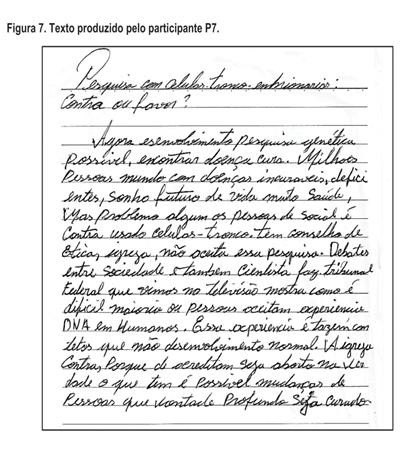 Figura 7. Texto produzido pelo participante P7.
Pesquisa com celular-tronco-embrionario:
Contra ou favor?
Agora esenvolvimento Pesquisa genética
Possível, encontrar doença cura. Milhoes
Pessoas mundo com doenças incuraveis, defici
entes, sonho futuro de vida muito Saúde,
Mas Problema algum os pessoas de social é
Contra usado celulas-tronco. tem conselho de
ética, igreja, não aceita essa pesquisa. Debates
entre Sociedade e tambem Cientista faz tribunal
Federal que vimos no televisão mostra como é
dificil maioria ou pessoas aceitam experiencia
DNA em Humanos. Essa experiencia é fazem con
tetos que não disemvolvimento normal. A igreja
Contra, Porque de acreditam seja aborto na ver
dade o que tem é Possível mudanças de
Pessoas que vontade Profunda seja Curado